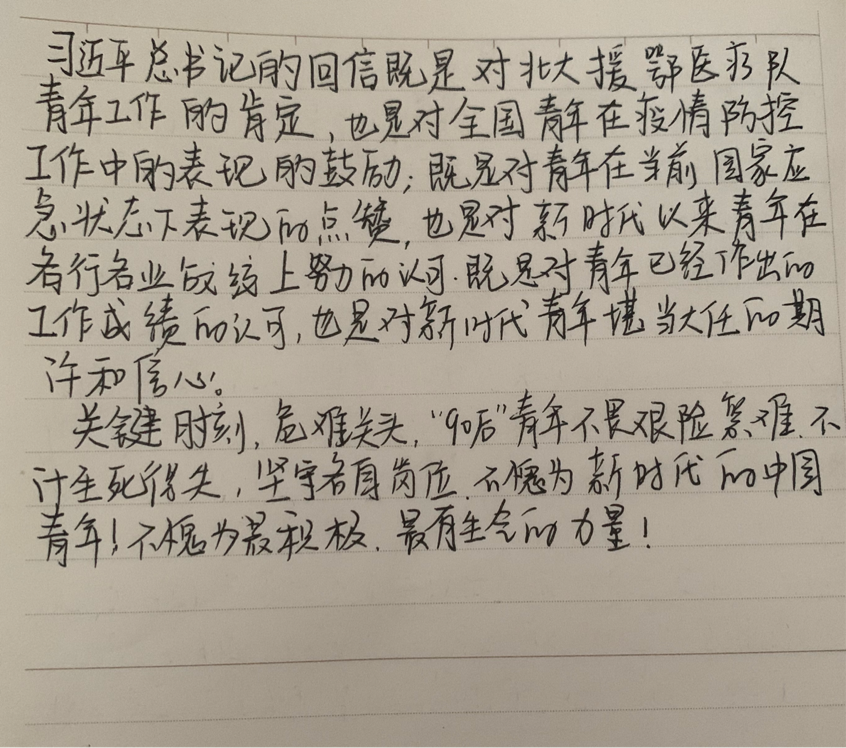 习近平总书记的回信既是对北大援鄂医疗队
青年工作的肯定，也是对全国青年在疫情防控
工作中的表现的鼓励；既是对青年在当前国家应
急状态下表现的点赞，也是对新时代以来青年在
各行各业战线上努力的认可.既是对青年已经作出的
工作成绩的认可，也是对新时代青年堪当大任的期
许和信心。
关键时刻，危难关头，“90后”青年不畏艰险繁难、不
计生死得失，坚守各自岗位、不愧为新时代的中国
青年！不愧为最积极、最有生念的力量！